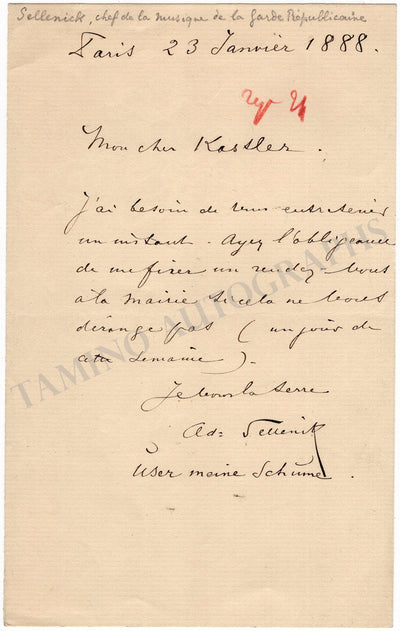 Sellenick, chef de la musique de la Garde Républicaine
Paris 23 Janvier 1888.
Mon cher Kastler.
J'ai besoin de vous entretenir
un instant. Ayez l'obligeance
de me fixer un rendez-vous
à la mairie si cela ne vous
dérange pas (un jour de
cette semaine).
Je vous la serre
Ad= Sellenick
User meine Schüme.
TAMINO AUTOGRAPHS